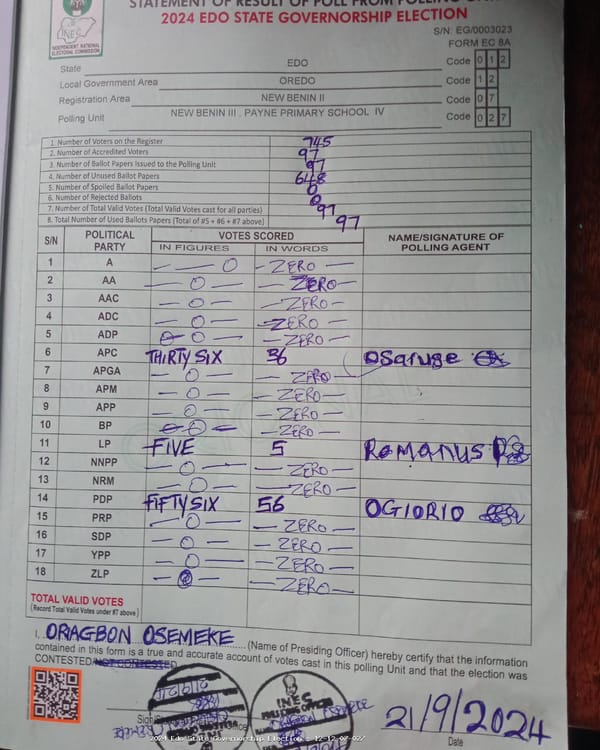 STATEMENT OF RESULT OF POLL FROM POLLING
2024 EDO STATE GOVERNORSHIP ELECTION
INEC
INDEPENDENT NATIONAL ELECTORAL COMMISSION
S/N: EG/0003023
FORM EC 8A
State EDO Code 0 1 2
Local Government Area OREDO Code 1 2
Registration Area NEW BENIN II Code 0 7
Polling Unit NEW BENIN III , PAYNE PRIMARY SCHOOL IV Code 0 2 7
1. Number of Voters on the Register 745
2. Number of Accredited Voters 97
3. Number of Ballot Papers Issued to the Polling Unit 97
4. Number of Unused Ballot Papers 648
5. Number of Spoiled Ballot Papers 0
6. Number of Rejected Ballots 0
7. Number of Total Valid Votes (Total Valid Votes cast for all parties) 97
8. Total Number of Used Ballots Papers (Total of #5 + #6 + #7 above) 97
S/N POLITICAL PARTY VOTES SCORED NAME/SIGNATURE OF POLLING AGENT
IN FIGURES IN WORDS
1 A — — 0 — ZERO —
2 AA — 0 — — ZERO —
3 AAC — 0 — — ZERO —
4 ADC — 0 — — ZERO —
5 ADP 0 — — ZERO —
6 APC THIRTY SIX 36 Osaruge
7 APGA — 0 — — ZERO —
8 APM — 0 — — ZERO —
9 APP — 0 — — ZERO —
10 BP — 0 — — ZERO —
11 LP FIVE 5 ROMANUS
12 NNPP — 0 — — ZERO —
13 NRM — 0 — — ZERO —
14 PDP FIFTY SIX 56 OGIORIO
15 PRP — 0 — — ZERO —
16 SDP — 0 — — ZERO —
17 YPP — 0 — — ZERO —
18 ZLP — 0 — — ZERO —
TOTAL VALID VOTES
(Record Total Valid Votes under #7 above)
I, ORAGBON OSEMEKE (Name of Presiding Officer) hereby certify that the information
contained in this form is a true and accurate account of votes cast in this polling Unit and that the election was
CONTESTED/NOT CONTESTED
INEC
21/9/2024
Date